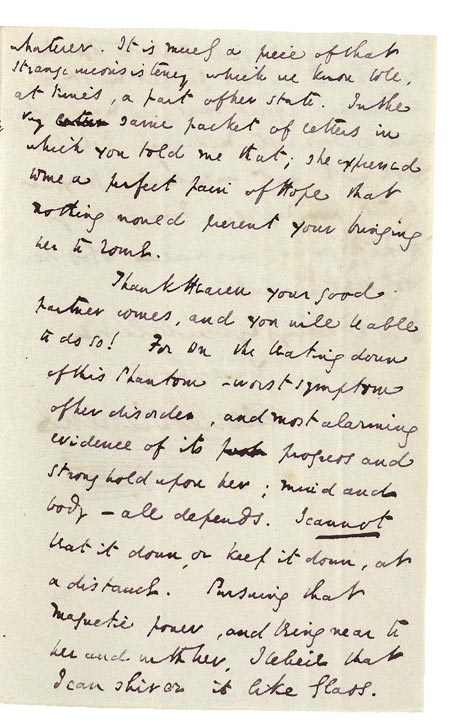 whatever. It is merely a piece of that
strange inconsistency which we know to be,
at times, a part of her state. In the
very same packet of letters in
which you told me that; she expressed
to me a perfect pain of Hope that
nothing would prevent your bringing
her to Rome.
Thank Heaven your good
partner comes, and you will be able
to do so! For on the beating down
of this Phantom - worst symptom
of her disorder, and most alarming
evidence of its progress and
strong hold upon her; mind and
body - all depends. I cannot
beat it down, or keep it down, at
a distance. Pursuing that
Magnetic power, and being near to
her and with her, I believe that
I can shiver it like Glass.